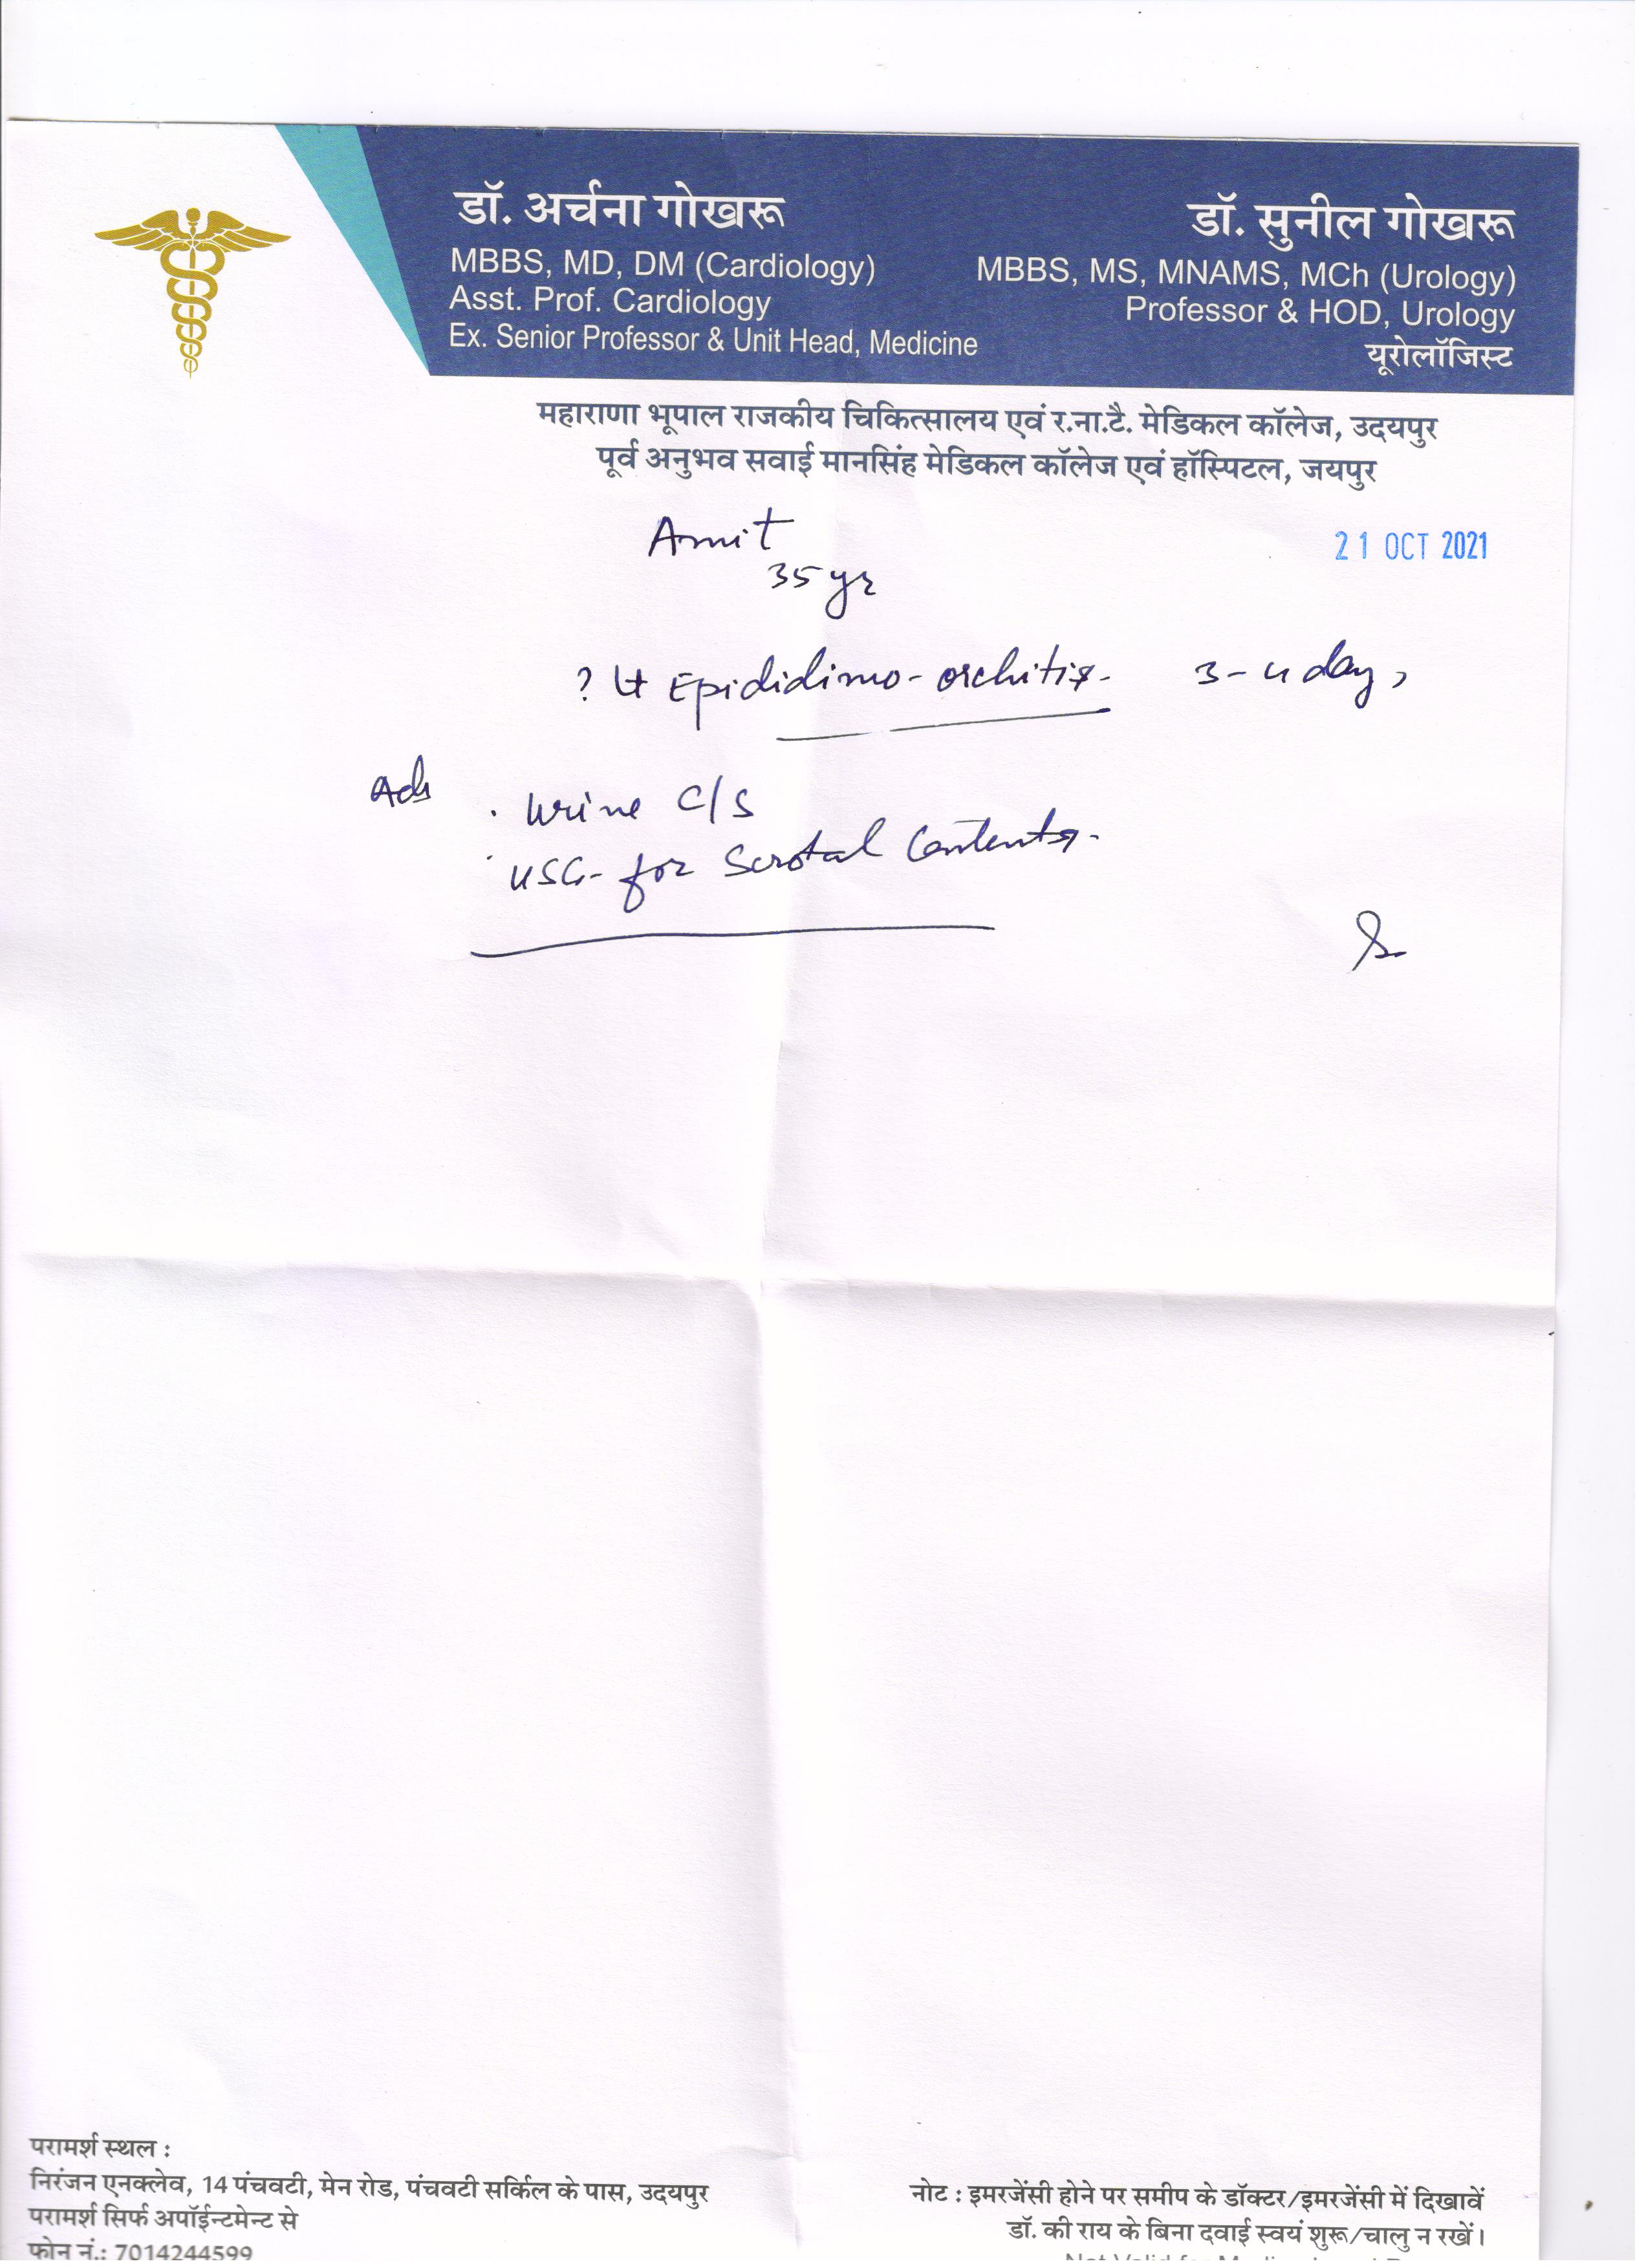 डॉ. अर्चना गोखरू
MBBS, MD, DM (Cardiology)
Asst. Prof. Cardiology
Ex. Senior Professor & Unit Head, Medicine
डॉ. सुनील गोखरू
MBBS, MS, MNAMS, MCh (Urology)
Professor & HOD, Urology
यूरोलॉजिस्ट
महाराणा भूपाल राजकीय चिकित्सालय एवं र.ना.टै. मेडिकल कॉलेज, उदयपुर
पूर्व अनुभव सवाई मानसिंह मेडिकल कॉलेज एवं हॉस्पिटल, जयपुर
Amit
21 OCT 2021
35 yr
? Lt Epididimo-orchitis - 3-4 days
Adv . Urine C/S
. USG - for Scrotal Contents -
परामर्श स्थल :
निरंजन एनक्लेव, 14 पंचवटी, मेन रोड, पंचवटी सर्किल के पास, उदयपुर
परामर्श सिर्फ अपॉईन्टमेन्ट से
फोन नं.: 7014244599
नोट : इमरजेंसी होने पर समीप के डॉक्टर/इमरजेंसी में दिखावें
डॉ. की राय के बिना दवाई स्वयं शुरू/चालु न रखें।